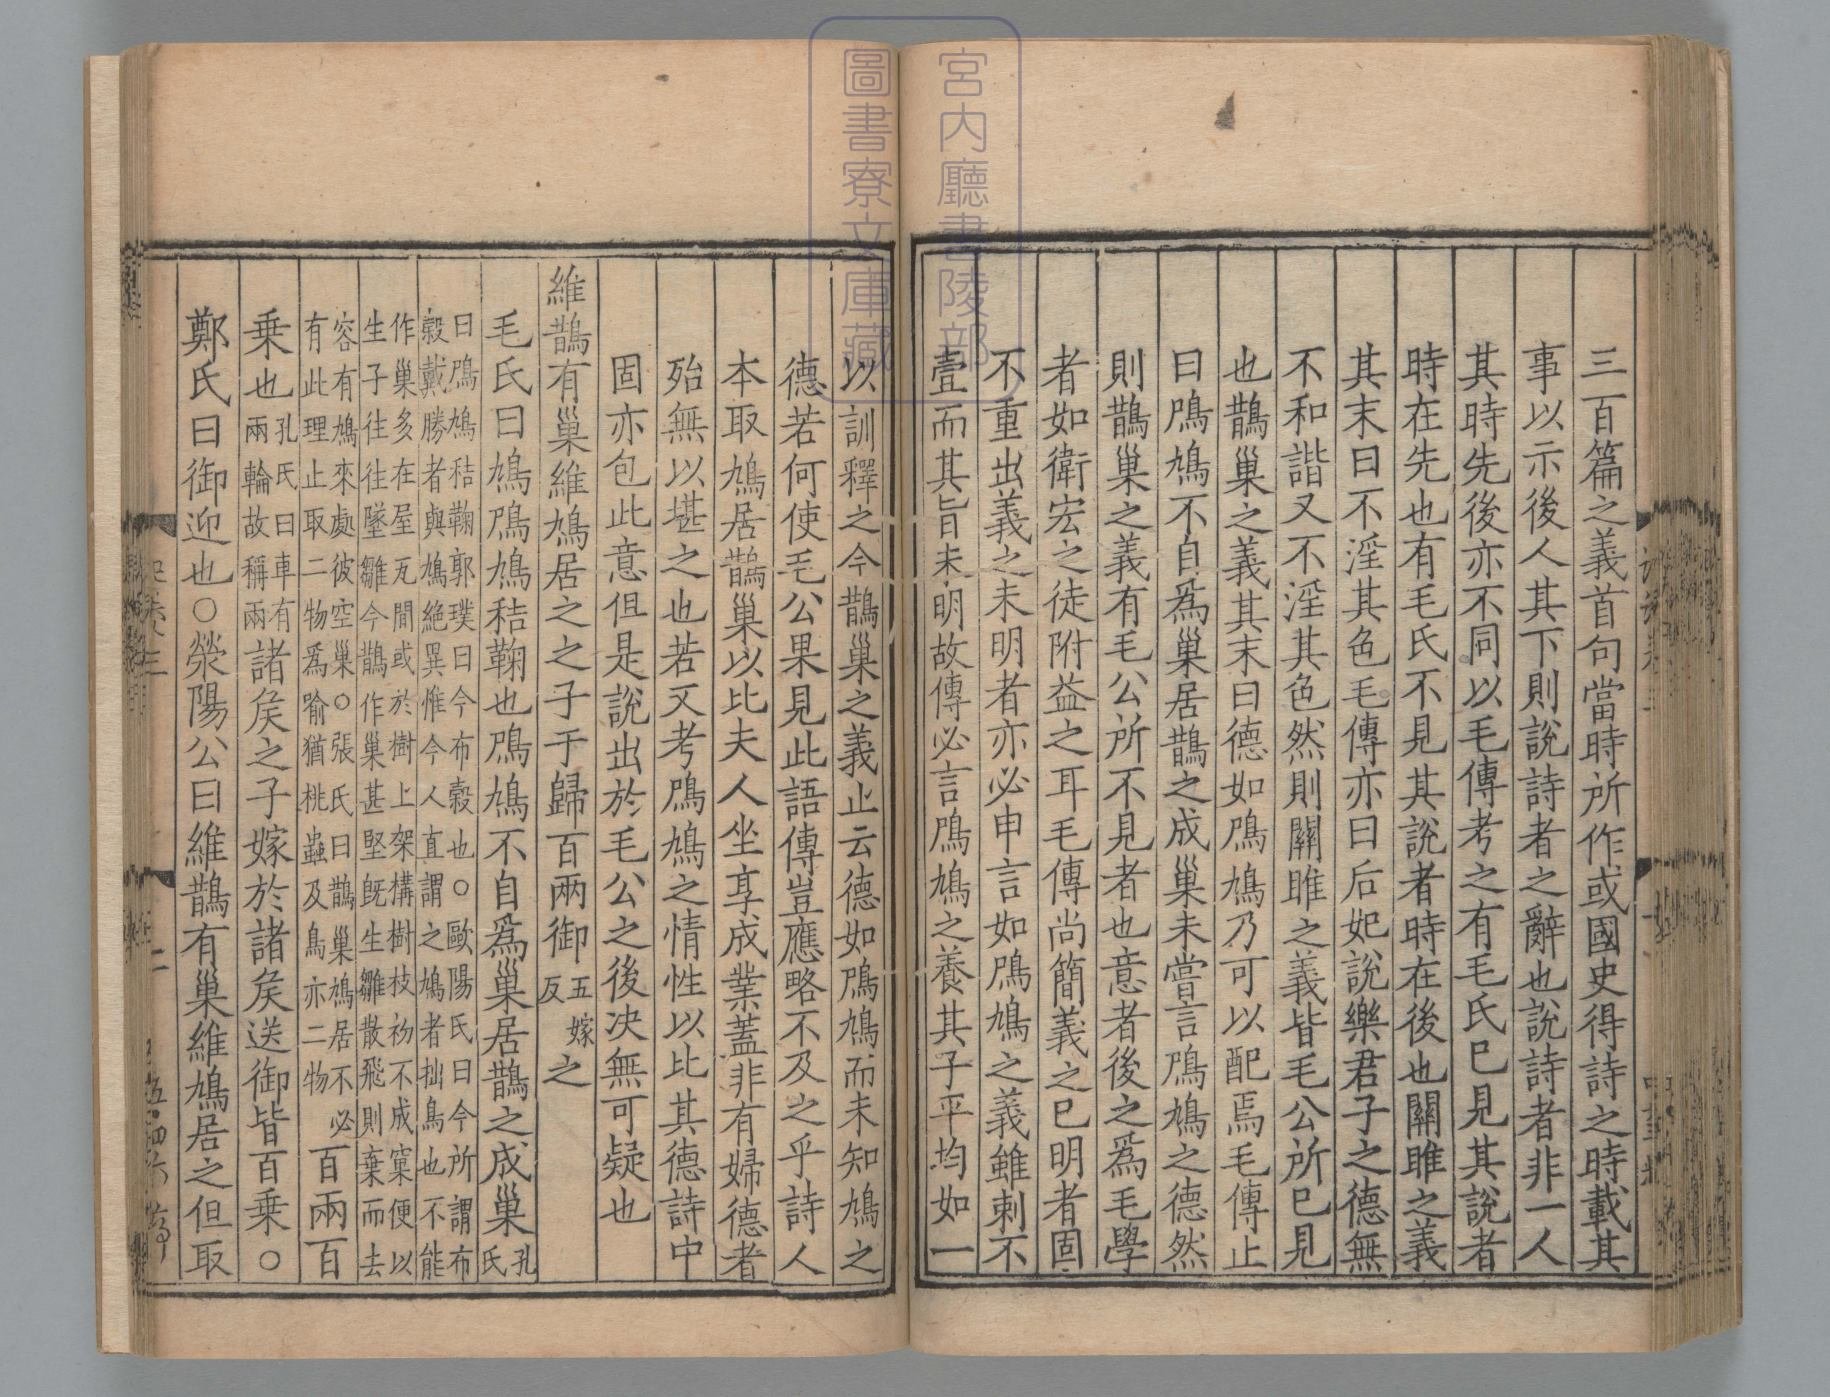 三百篇之義首句當時所作或國史得詩之時載其
事以示後人其下則說詩者之辭也說詩者非一人
其時先後亦不同以毛傳考之有毛氏已見其說者
時在先也有毛氏不見其說者時在後也關雎之義
其末曰不淫其色毛傳亦曰后妃說樂君子之德無
不和諧又不淫其色然則關雎之義皆毛公所已見
也鵲巢之義其末曰德如鳲鳩乃可以配焉毛傳止
曰鳲鳩不自爲巢居鵲之成巢未嘗言鳲鳩之德然
則鵲巢之義有毛公所不見者也意者後之爲毛學
者如衛宏之徒附益之耳毛傳尚簡義之已明者固
不重出義之未明者亦必申言如鳲鳩之義雖刺不
壹而其旨未明故傳必言鳲鳩之養其子平均如一
以訓釋之今鵲巢之義止云德如鳲鳩而未知鳩之
德若何使毛公果見此語傳豈應略不及之乎詩人
本取鳩居鵲巢以比夫人坐享成業蓋非有婦德者
殆無以堪之也若又考鳲鳩之情性以比其德詩中
固亦包此意但是說出於毛公之後決無可疑也
維鵲有巢維鳩居之之子于歸百兩御五嫁反之
毛氏曰鳩鳲鳩秸鞠也鳲鳩不自爲巢居鵲之成巢孔氏
曰鳲鳩秸鞠郭璞曰今布穀也○歐陽氏曰今所謂布
穀戴勝者與鳩絶異惟今人直謂之鳩者拙鳥也不能
作巢多在屋瓦間或於樹上架構樹枝初不成窠便以
生子往往墜雛今鵲作巢甚堅旣生雛散飛則棄而去
容有鳩來處彼空巢○張氏曰鵲巢鳩居不必
有此理止取二物爲喻猶桃蟲及鳥亦二物
百兩百
乗也孔氏曰車有兩輪故稱兩諸矦之子嫁於諸矦送御皆百乗○
鄭氏曰御迎也○滎陽公曰維鵲有巢維鳩居之但取
宮內廳書陵部
圖書寮文庫藏